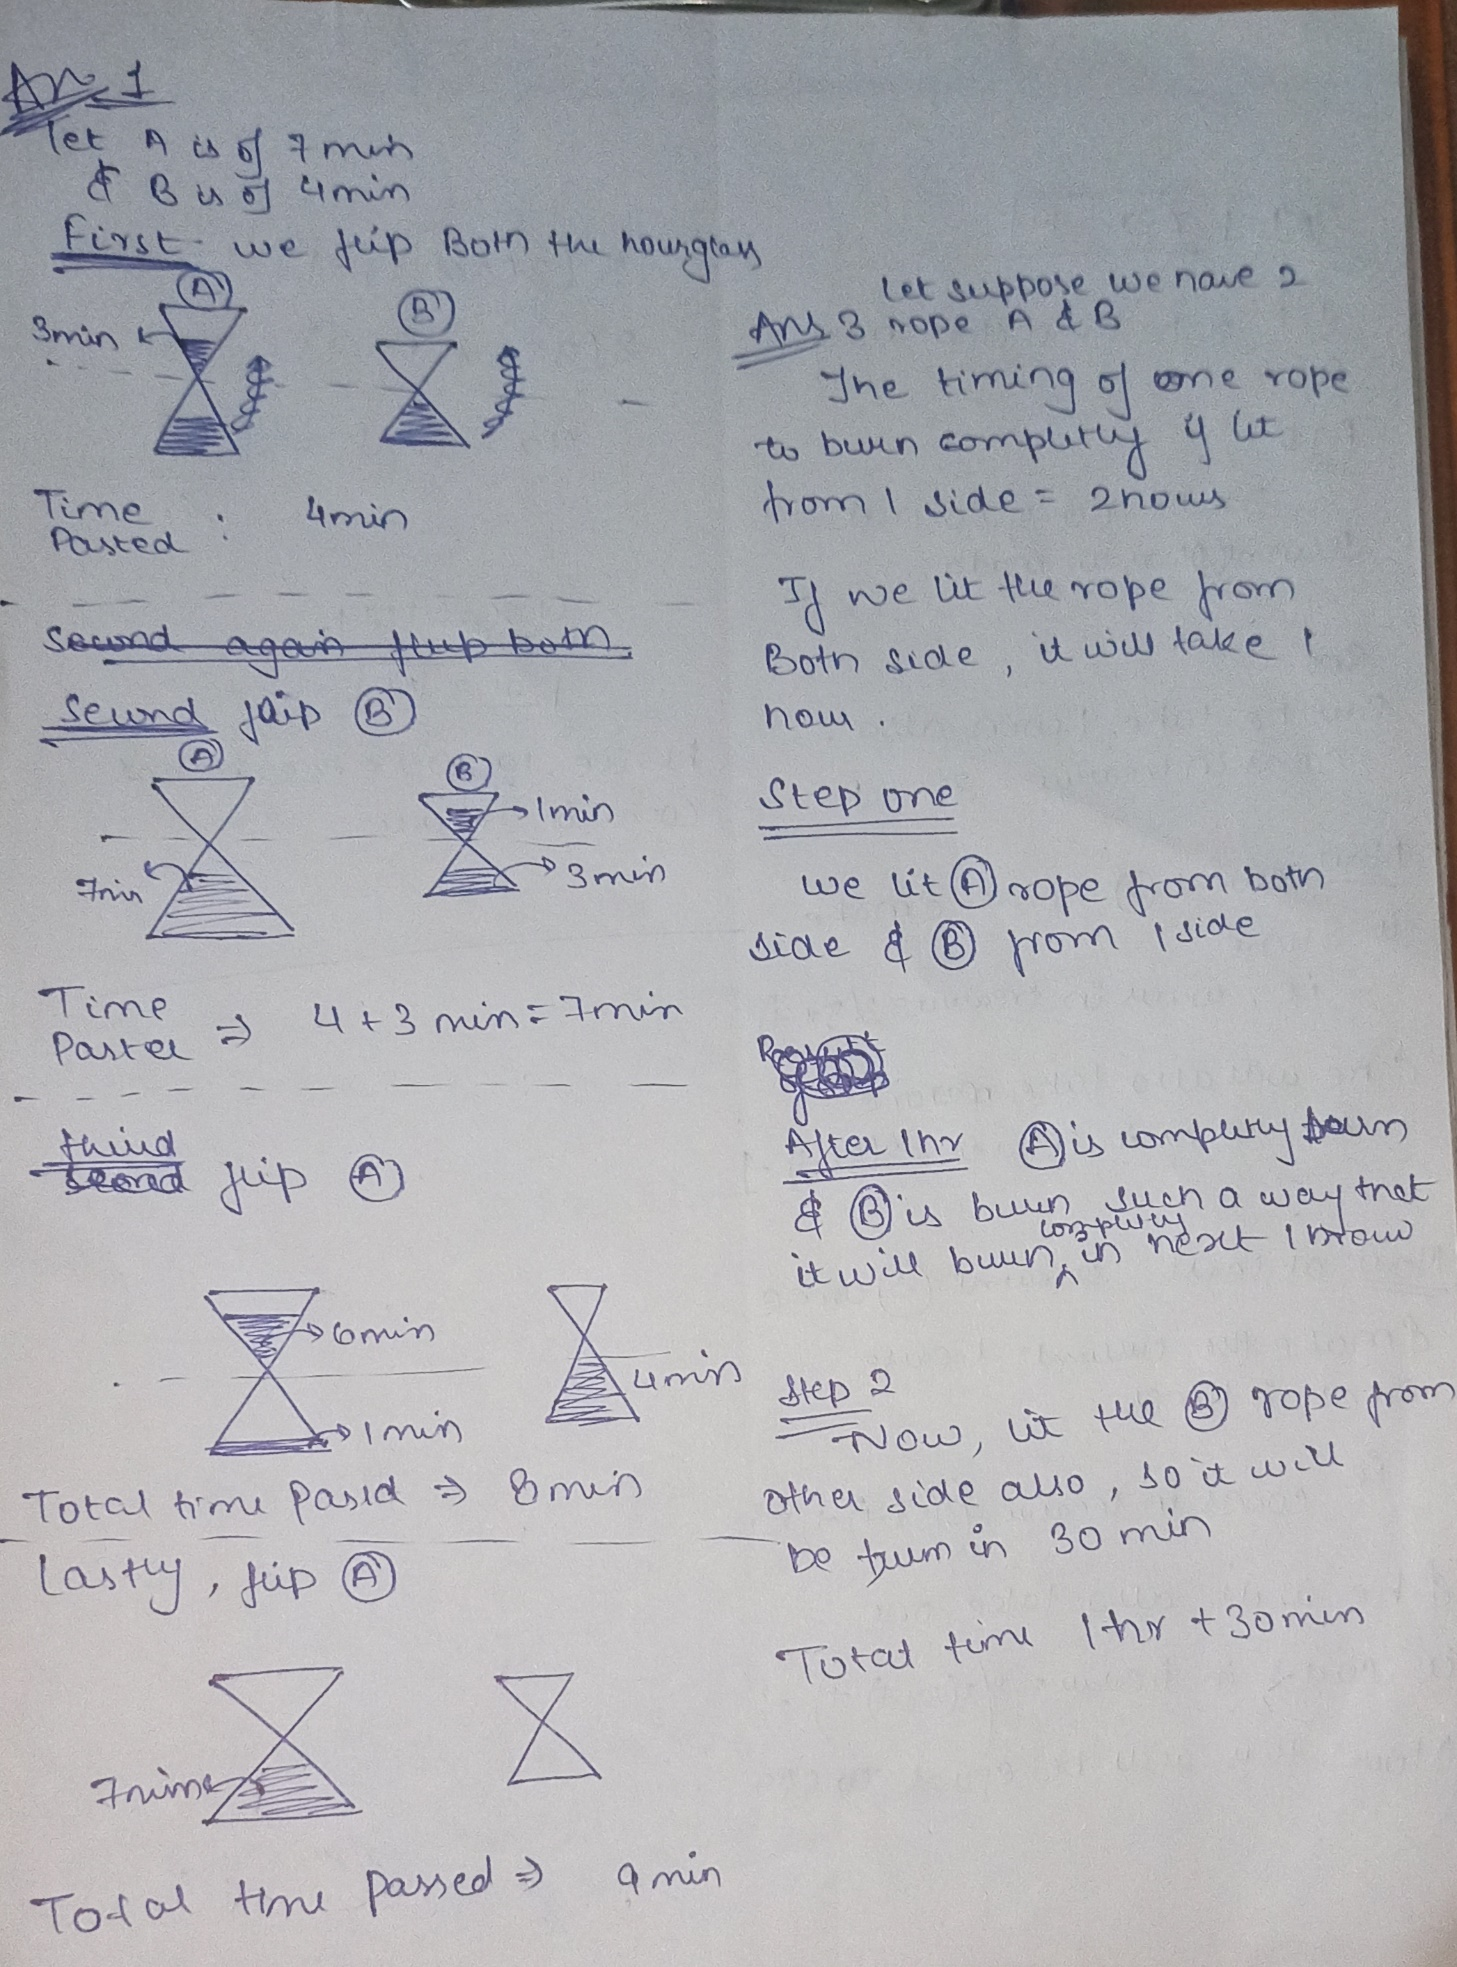 Ans 1
let A is of 7 min
& B is of 4 min
First we flip Both the hourglass
A
B
3min
Time
Pasted : 4min
Second again flip both
Second flip B
A
B
1min
3min
7min
Time
Paster ⇒ 4 + 3 min = 7min
third
second flip A
6min
1min
4min
Total time Passed ⇒ 8min
Lastly, flip A
7mins
Total time Passed ⇒ 9 min
let suppose we have 2
Ans 3 rope A & B
The timing of one rope
to burn completly if lit
from 1 side = 2 hours
If we lit the rope from
Both side, it will take 1
hour.
Step one
we lit A rope from both
side & B from 1 side
After 1hr A is completly burn
& B is burn such a way that
it will burn completly in next 1 hour
Step 2
Now, lit the B rope from
other side also, so it will
be burn in 30 min
Total time 1 hr + 30 min